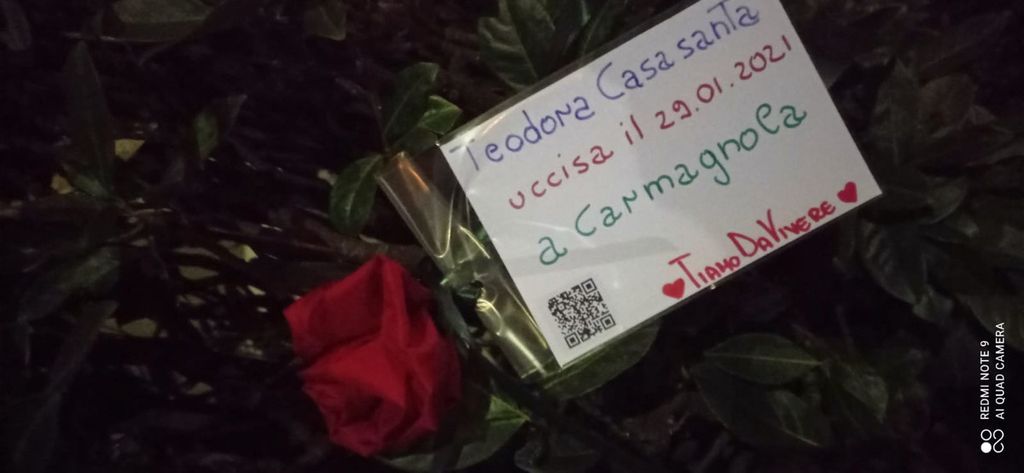 Teodora Casasanta
uccisa il 29.01.2021
a Carmagnola
TiAMO DAVIVERE
REDMI NOTE 9
AI QUAD CAMERA